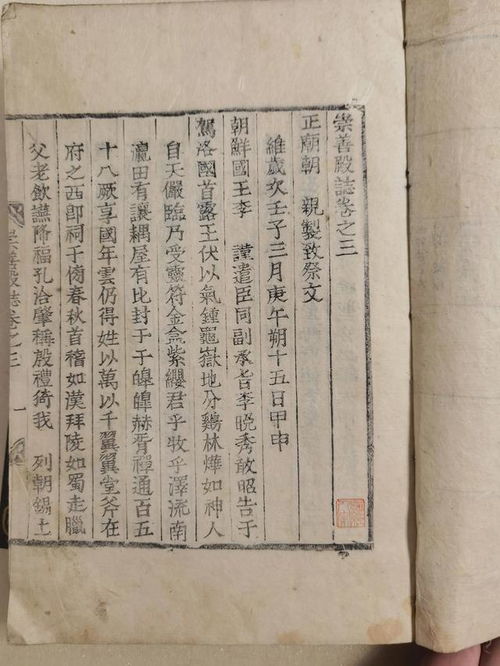 崇善殿誌卷之三
正廟朝 親製致祭文
維歲次壬子三月庚午朔十五日甲申
朝鮮國王李 謹遣臣同副承旨李晚秀敢昭告于
駕洛國首露王伏以氣鍾龜嶽地分鷄林燁如神人
自天儼臨乃受靈符金盒紫纓君乎牧乎澤流南
瀛田有讓耦屋有比封于于皥皥赫胥禪通百五
十八厥享國年雲仍得姓以萬以千翼翼堂斧在
府之西卽祠于傍春秋首稽如漢拜陵如蜀走臘
父老飮讌降福孔洽肇稱殷禮猗我 列朝錫土
崇善殿誌卷之三 一